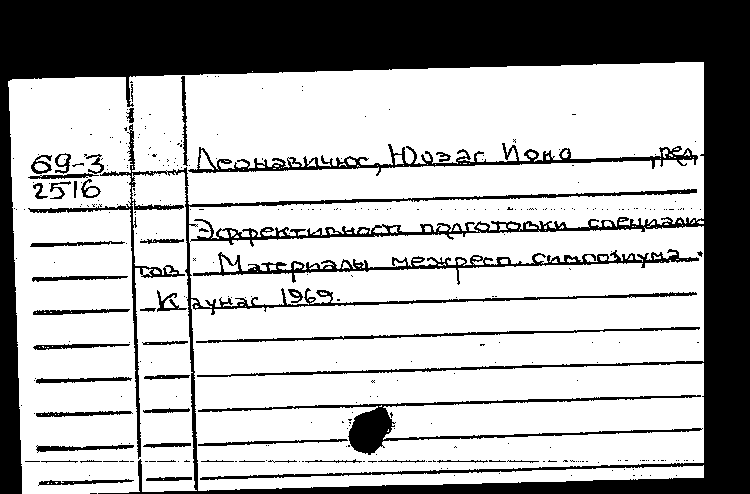 69-3
2516
Леонавичюс, Юозас Ионо , ред.
Эффективность подготовки специалис
тов. Материалы межресп. симпозиума.
Каунас, 1969.